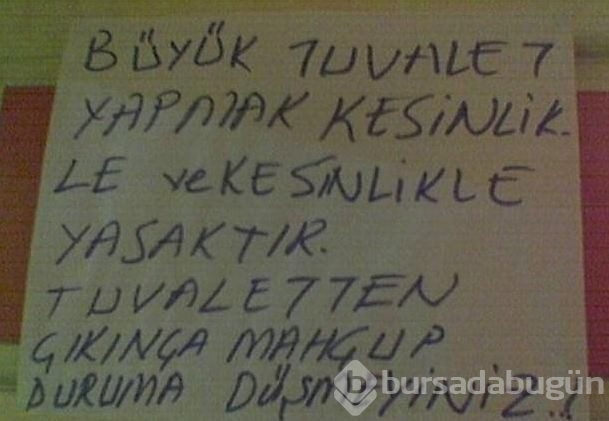 BÜYÜK TUVALET
YAPMAK KESİNLİK.
LE ve KESİNLİKLE
YASAKTIR.
TUVALETTEN
ÇIKINÇA MAHÇUP
DURUMA DÜŞMEYİNİZ..!
bursadabugün